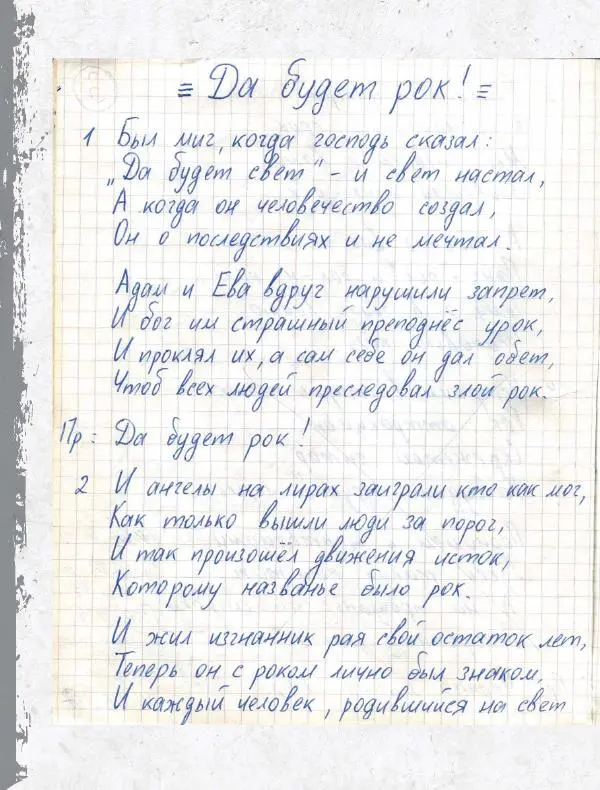 ≡ Да будет рок! ≡
1 Был миг, когда господь сказал:
„Да будет свет" - и свет настал,
А когда он человечество создал,
Он о последствиях и не мечтал.
Адам и Ева вдруг нарушили запрет,
И бог им страшный преподнёс урок,
И проклял их, а сам себе он дал обет,
Чтоб всех людей преследовал злой рок.
Пр: Да будет рок!
2 И ангелы на лирах заиграли кто как мог,
Как только вышли люди за порог,
И так произошёл движения исток,
Которому названье было рок.
И жил изгнанник рая свой остаток лет,
Теперь он с роком лично был знаком,
И каждый человек, родившийся на свет